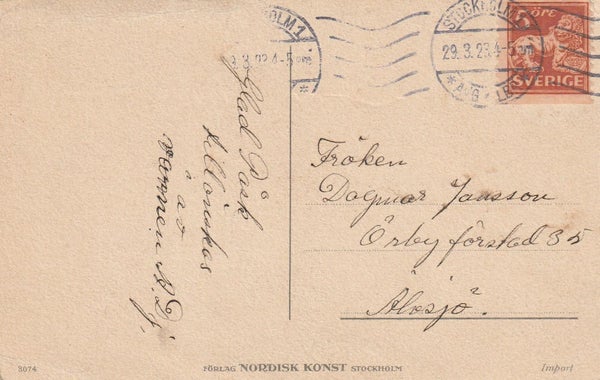 STOCKHOLM 1
29.3.23.4-5
5 ÖRE
SVERIGE
Glad Påsk
tillönskas
av
vännen
Fröken
Dagmar Jansson
Örby förstad 35
Älvsjö
3074
FÖRLAG NORDISK KONST STOCKHOLM
Import